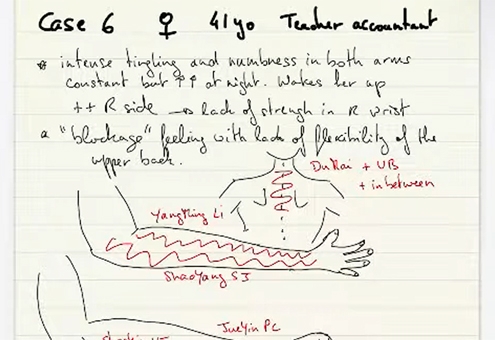 Case 6 ♀ 41yo Teacher accountant
* intense tingling and numbness in both arms
constant but ↑↑ at night. Wakes her up
++ R side → lack of strengh in R wrist
"blockage" feeling with lack of flexibility of the
upper back.
Du Mai + UB
+ in between
YangMing LI
ShaoYang SJ
JueYin PC